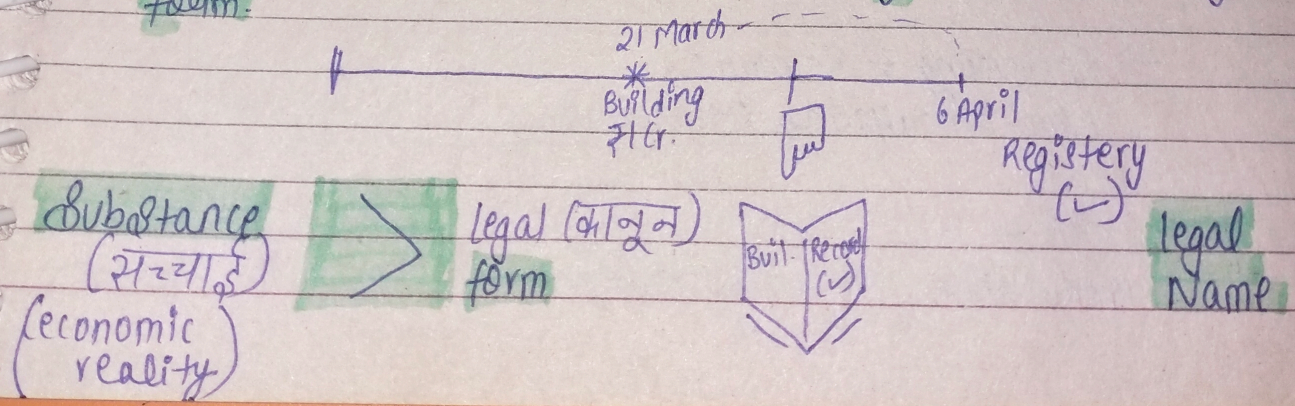 form.
21 March
Building
₹1 Cr.
6 April
Registery
(✓)
Substance
(सच्चाई)
(economic
reality)
>
legal (कानून)
form
Buil. Record
(✓)
legal
Name